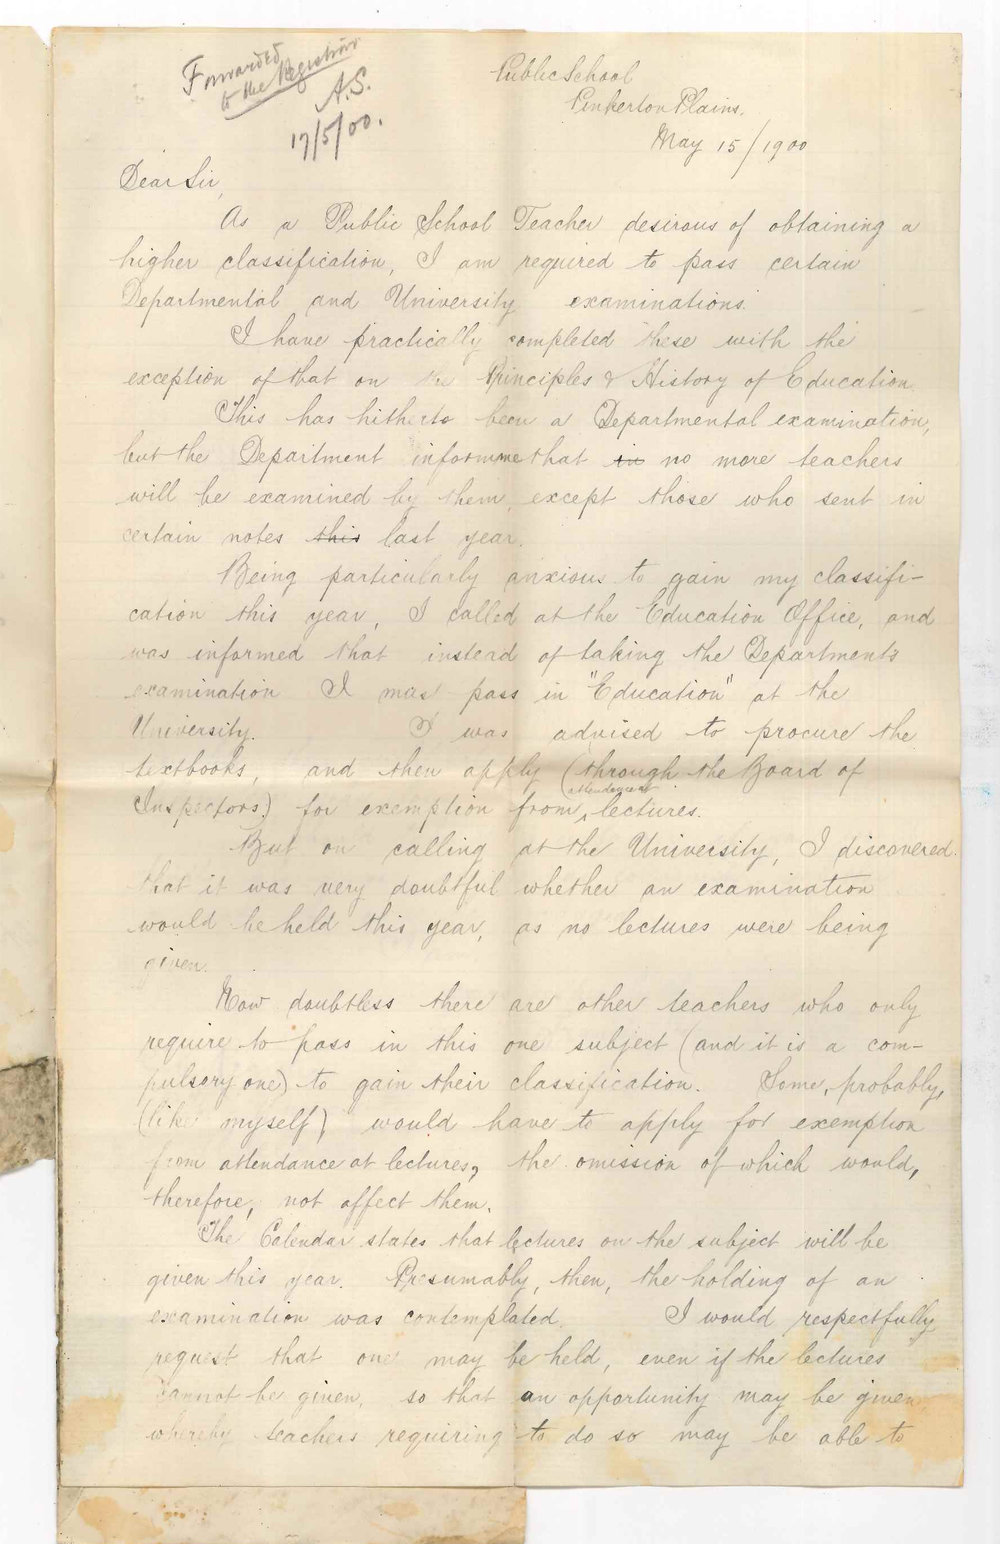 Forwarded
to the Registrar
A.S.
17/5/00.
Public School
Pinkerton Plains.
May 15/1900
Dear Sir,
As a Public School Teacher desirous of obtaining a
higher classification, I am required to pass certain
Departmental and University examinations.
I have practically completed these with the
exception of that on the Principles & History of Education.
This has hitherto been a Departmental examination,
but the Department inform me that in no more teachers
will be examined by them, except those who sent in
certain notes this last year.
Being particularly anxious to gain my classifi-
cation this year, I called at the Education Office, and
was informed that instead of taking the Departments
examination I may pass in "Education" at the
University. I was advised to procure the
textbooks, and then apply (through the Board of
Inspectors) for exemption from attendance at lectures.
But on calling at the University, I discovered
that it was very doubtful whether an examination
would be held this year, as no lectures were being
given.
Now doubtless there are other teachers who only
require to pass in this one subject (and it is a com-
pulsory one) to gain their classification. Some, probably,
(like myself) would have to apply for exemption
from attendance at lectures, the omission of which would,
therefore, not affect them.
The Calendar states that lectures on the subject will be
given this year. Presumably, then, the holding of an
examination was contemplated. I would respectfully
request that one may be held, even if the lectures
cannot be given, so that an opportunity may be given
whereby teachers requiring to do so may be able to